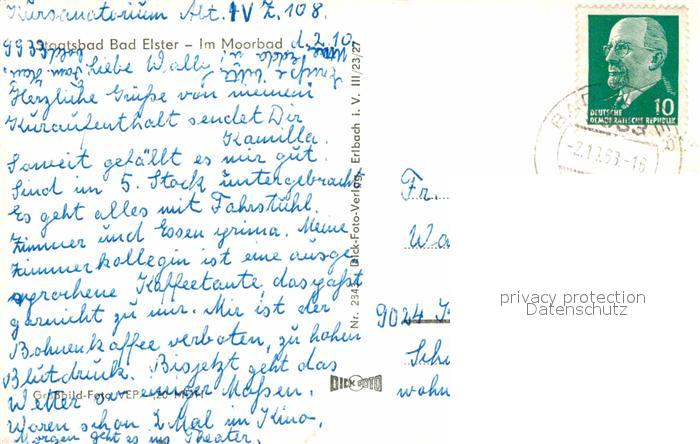 Kursanatorium Abt. IV Z. 108.
Staatsbad Bad Elster – Im Moorbad
9933
d. 2.10.
Liebe Wally!
Herzliche Grüße von meinem
Kuraufenthalt sendet Dir
Kamilla.
Soweit gefällt es mir gut.
Sind im 5. Stock untergebracht.
Es geht alles mit Fahrstuhl.
Zimmer und Essen prima. Meine
Zimmerkollegin ist eine ausge
sprochene Kaffeetante, das paßt
garnicht zu mir. Mir ist der
Bohnenkaffee verboten, zu hoher
Blutdruck. Bisjetzt geht das
Wetter so einiger Maßen.
Waren schon 2 Mal im Kino,
Morgen geht es ins Theater.
Großbild-Foto VEB
Nr. 234 Dick-Foto-Verlag, Erlbach i. V. III/23/27
DICK FOTO
10
DEUTSCHE
DEMOKRATISCHE REPUBLIK
BAD
Fr.
Wa
9024
Sch
wohn
privacy protection
Datenschutz